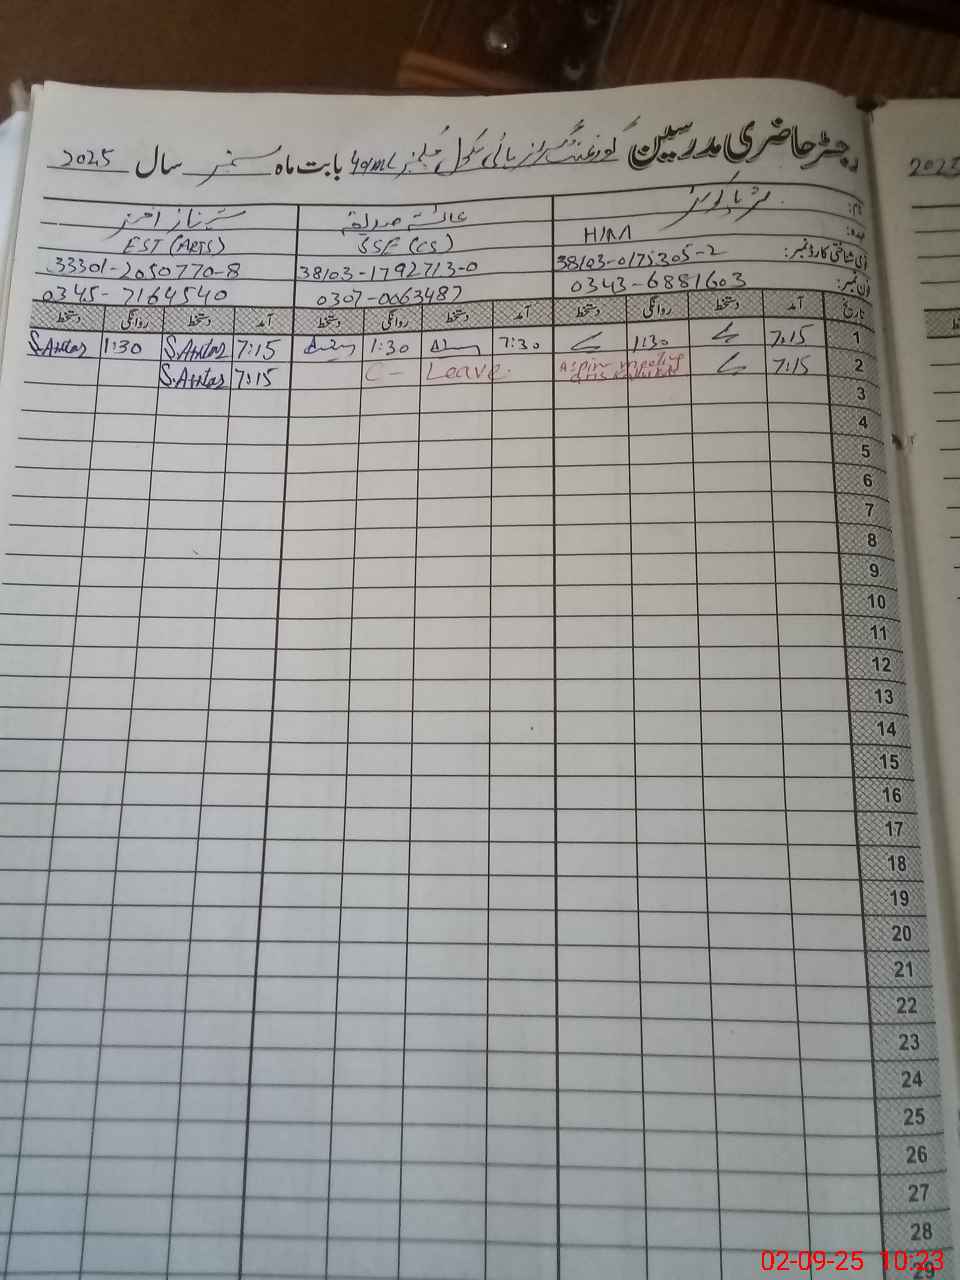 رجسٹر حاضری مدرسین گورنمنٹ گرلز ہائی سکول 49ML بابت ماہ ستمبر سال 2025
نام: عائشہ صدیقہ شہناز اختر
عہدہ: H/M SSE (CS) EST (ARTS)
قومی شناختی کارڈ نمبر: 38103-0175305-2 38103-1792713-0 33301-2050770-8
فون نمبر: 0343-6881603 0307-0063487 0345-7164540
تاریخ آمد دستخط روانگی دستخط آمد دستخط روانگی دستخط آمد دستخط روانگی دستخط
1 7:15 1:30 7:30 1:30 7:15 S.Akhtar 1:30 S.Akhtar
2 7:15 C- Leave 7:15 S.Akhtar
3
4
5
6
7
8
9
10
11
12
13
14
15
16
17
18
19
20
21
22
23
24
25
26
27
28
29
2025
02-09-25 10:23